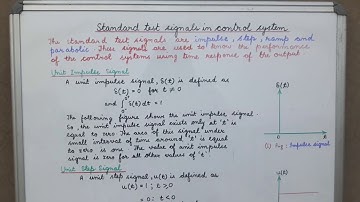 Standard test signals in control system
The standard test signals are impulse, step, ramp and
parabolic. These signals are used to know the performance
of the control systems using time response of the output.
Unit Impulse Signal
A unit impulse signal, δ(t) is defined as
δ(t) = 0 for t ≠ 0
and ∫ δ(t) dt = 1
The following figure shows the unit impulse signal.
So, the unit impulse signal exists only at 't' is
equal to zero. The area of this signal under
small interval of time around 't' is equal
to zero is one. The value of unit impulse
signal is zero for all other values of 't'.
δ(t)
0 t
(1) Fig: Impulse signal
Unit Step Signal
A unit step signal, u(t) is defined as
u(t) = 1 ; t ≥ 0
= 0 ; t < 0
u(t)